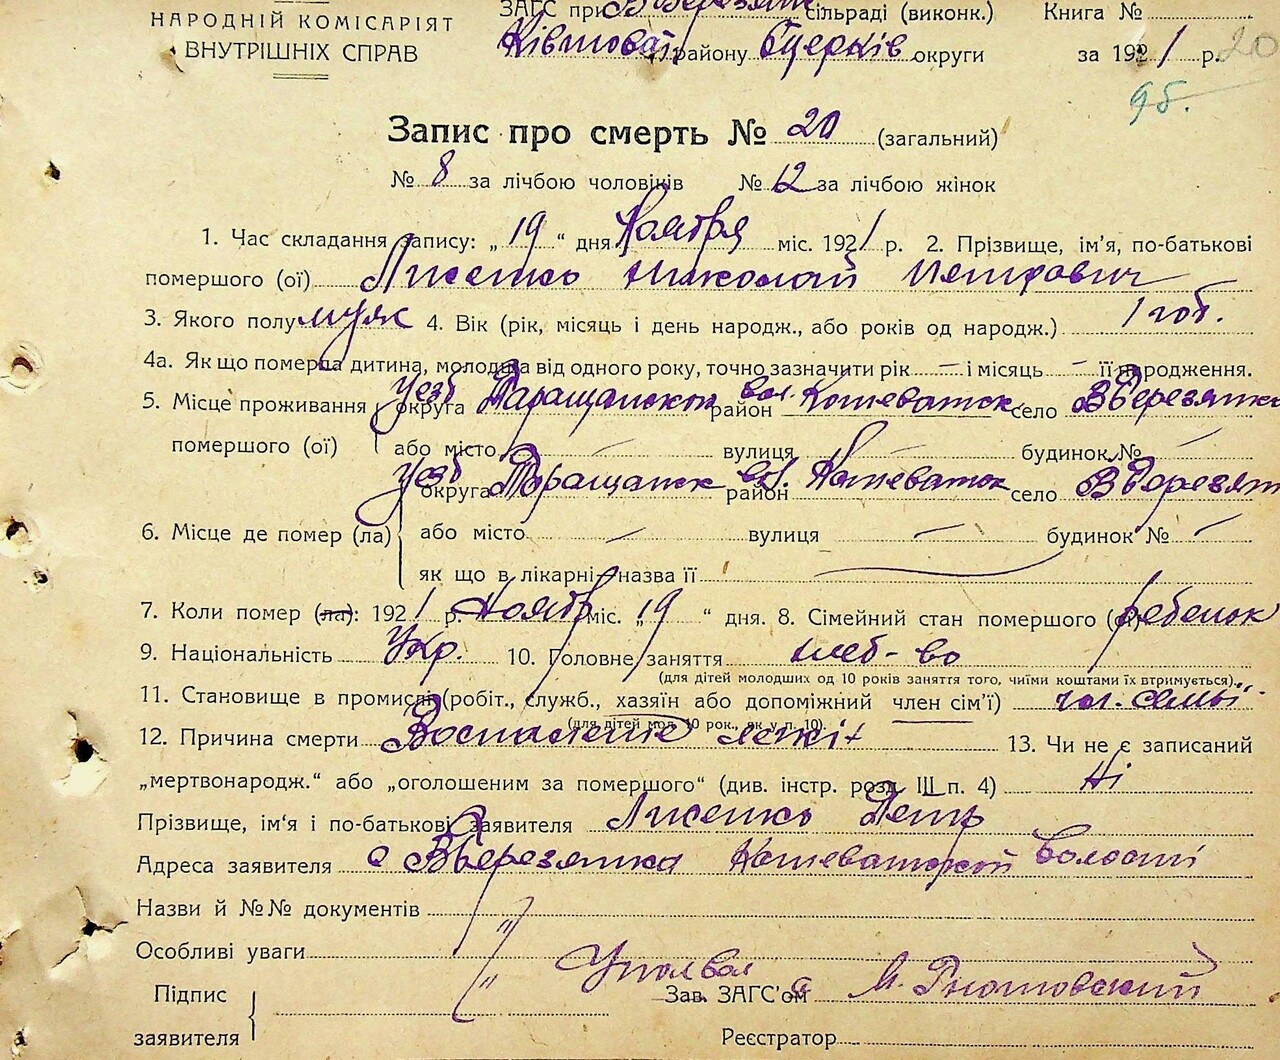 НАРОДНІЙ КОМІСАРІЯТ
ВНУТРІШНІХ СПРАВ
ЗАГС при В Березян сільраді (виконк.) Книга №
району Бцерків округи за 1921 р. 20
Запис про смерть № 20 (загальний)
№ 8 за лічбою чоловіків № 12 за лічбою жінок
1. Час складання запису: „ 19 “ дня Ноября міс. 1921 р. 2. Прізвище, ім’я, по-батькові
помершого (ої) Лисенко Николай Петрович
3. Якого полу муж 4. Вік (рік, місяць і день народж., або років од народж.) 1 год.
4а. Як що померла дитина, молодша від одного року, точно зазначити рік — і місяць — її народження.
5. Місце проживання уезд округа Таращанском вол. район Кошеватск село В Березянка
помершого (ої) або місто — вулиця — будинок № —
уезд округа Таращанск вол. район Кошеваток село В Березян
6. Місце де помер (ла) або місто — вулиця — будинок № —
як що в лікарні—назва її —
7. Коли помер (ла): 1921 р. Ноябр міс. „ 19 “ дня. 8. Сімейний стан помершого (ої) ребенок
9. Національність Укр. 10. Головне заняття хлеб-во
(для дітей молодших од 10 років заняття того, чиїми коштами їх втримується).
11. Становище в промислі (робіт., служб., хазяїн або допоміжний член сім’ї) гол. семьї
(для дітей мол. 10 рок., як у п. 10).
12. Причина смерти Воспаление легких 13. Чи не є записаний
„мертвонародж.“ або „оголошеним за помершого“ (див. інстр. розд. III п. 4) Ні
Прізвище, ім‘я і по-батькові заявителя Лисенко Петр
Адреса заявителя с В Березянка Кошеватской волості
Назви й №№ документів
Особливі уваги
Підпис
заявителя
Зав. ЗАГС’ом
Реєстратор